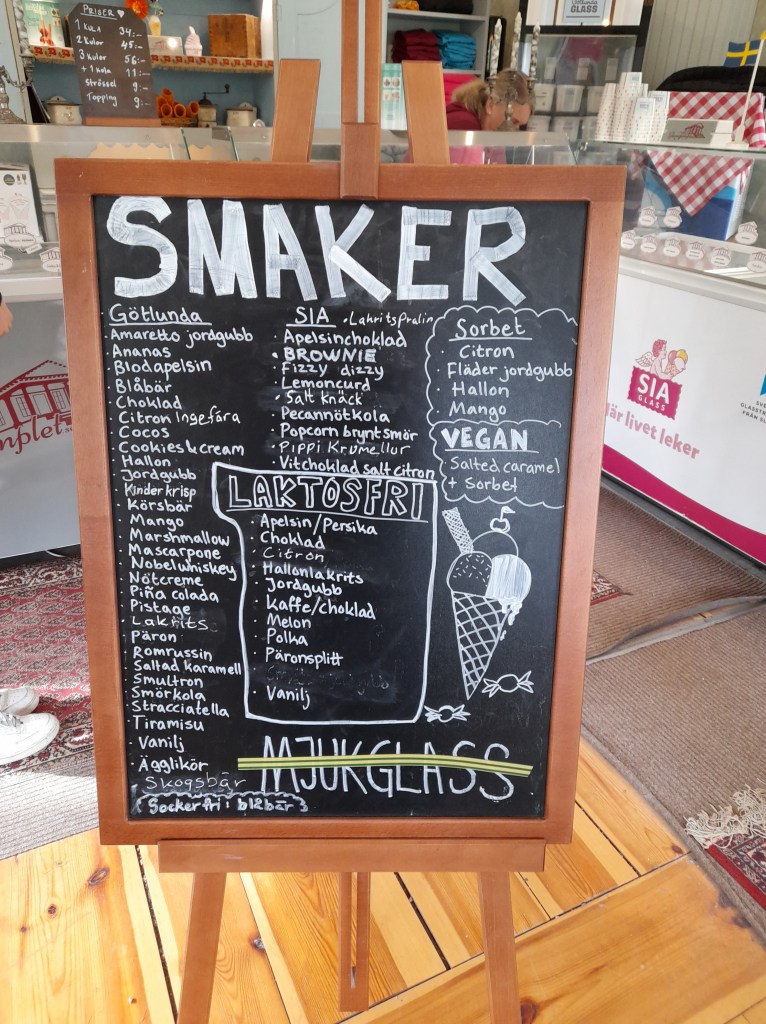 PRISER
1 kula 34:-
2 kulor 45:-
3 kulor 56:-
+ 1 kula 11:-
Strössel 9:-
Topping 9:-
Götlunda
GLASS
SMAKER
Götlunda
Amaretto jordgubb
Ananas
Blodapelsin
Blåbär
Choklad
Citron Ingefära
Cocos
Cookies & cream
Hallon
Jordgubb
Kinder krisp
Körsbär
Mango
Marshmallow
Mascarpone
Nobelwhiskey
Nötcreme
Piña colada
Pistage
Lakrits
Päron
Romrussin
Saltad karamell
Smultron
Smörkola
Stracciatella
Tiramisu
Vanilj
Ägglikör
Skogsbär
Sockerfri: blåbär
SIA
Lakritspralin
Apelsinchoklad
BROWNIE
Fizzy dizzy
Lemoncurd
Salt knäck
Pecannötkola
Popcorn brynt smör
Pippi Krumellur
Vitchoklad salt citron
LAKTOSFRI
Apelsin/Persika
Choklad
Citron
Hallonlakrits
Jordgubb
Kaffe/choklad
Melon
Polka
Päronsplitt
Vanilj
Sorbet
Citron
Fläder jordgubb
Hallon
Mango
VEGAN
Salted caramel
+ Sorbet
MJUKGLASS
SIA
GLASS
är livet leker